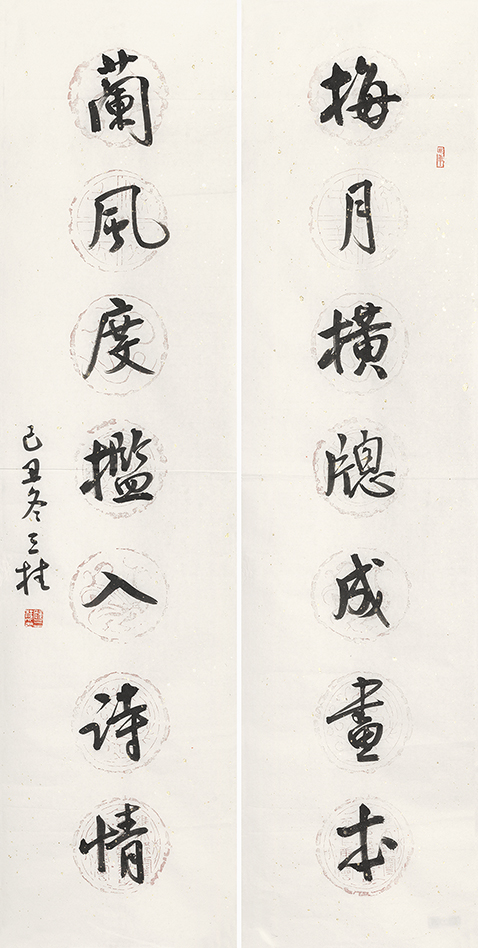 梅月横牕成畫本
蘭風度檻入詩情
己丑冬三桂